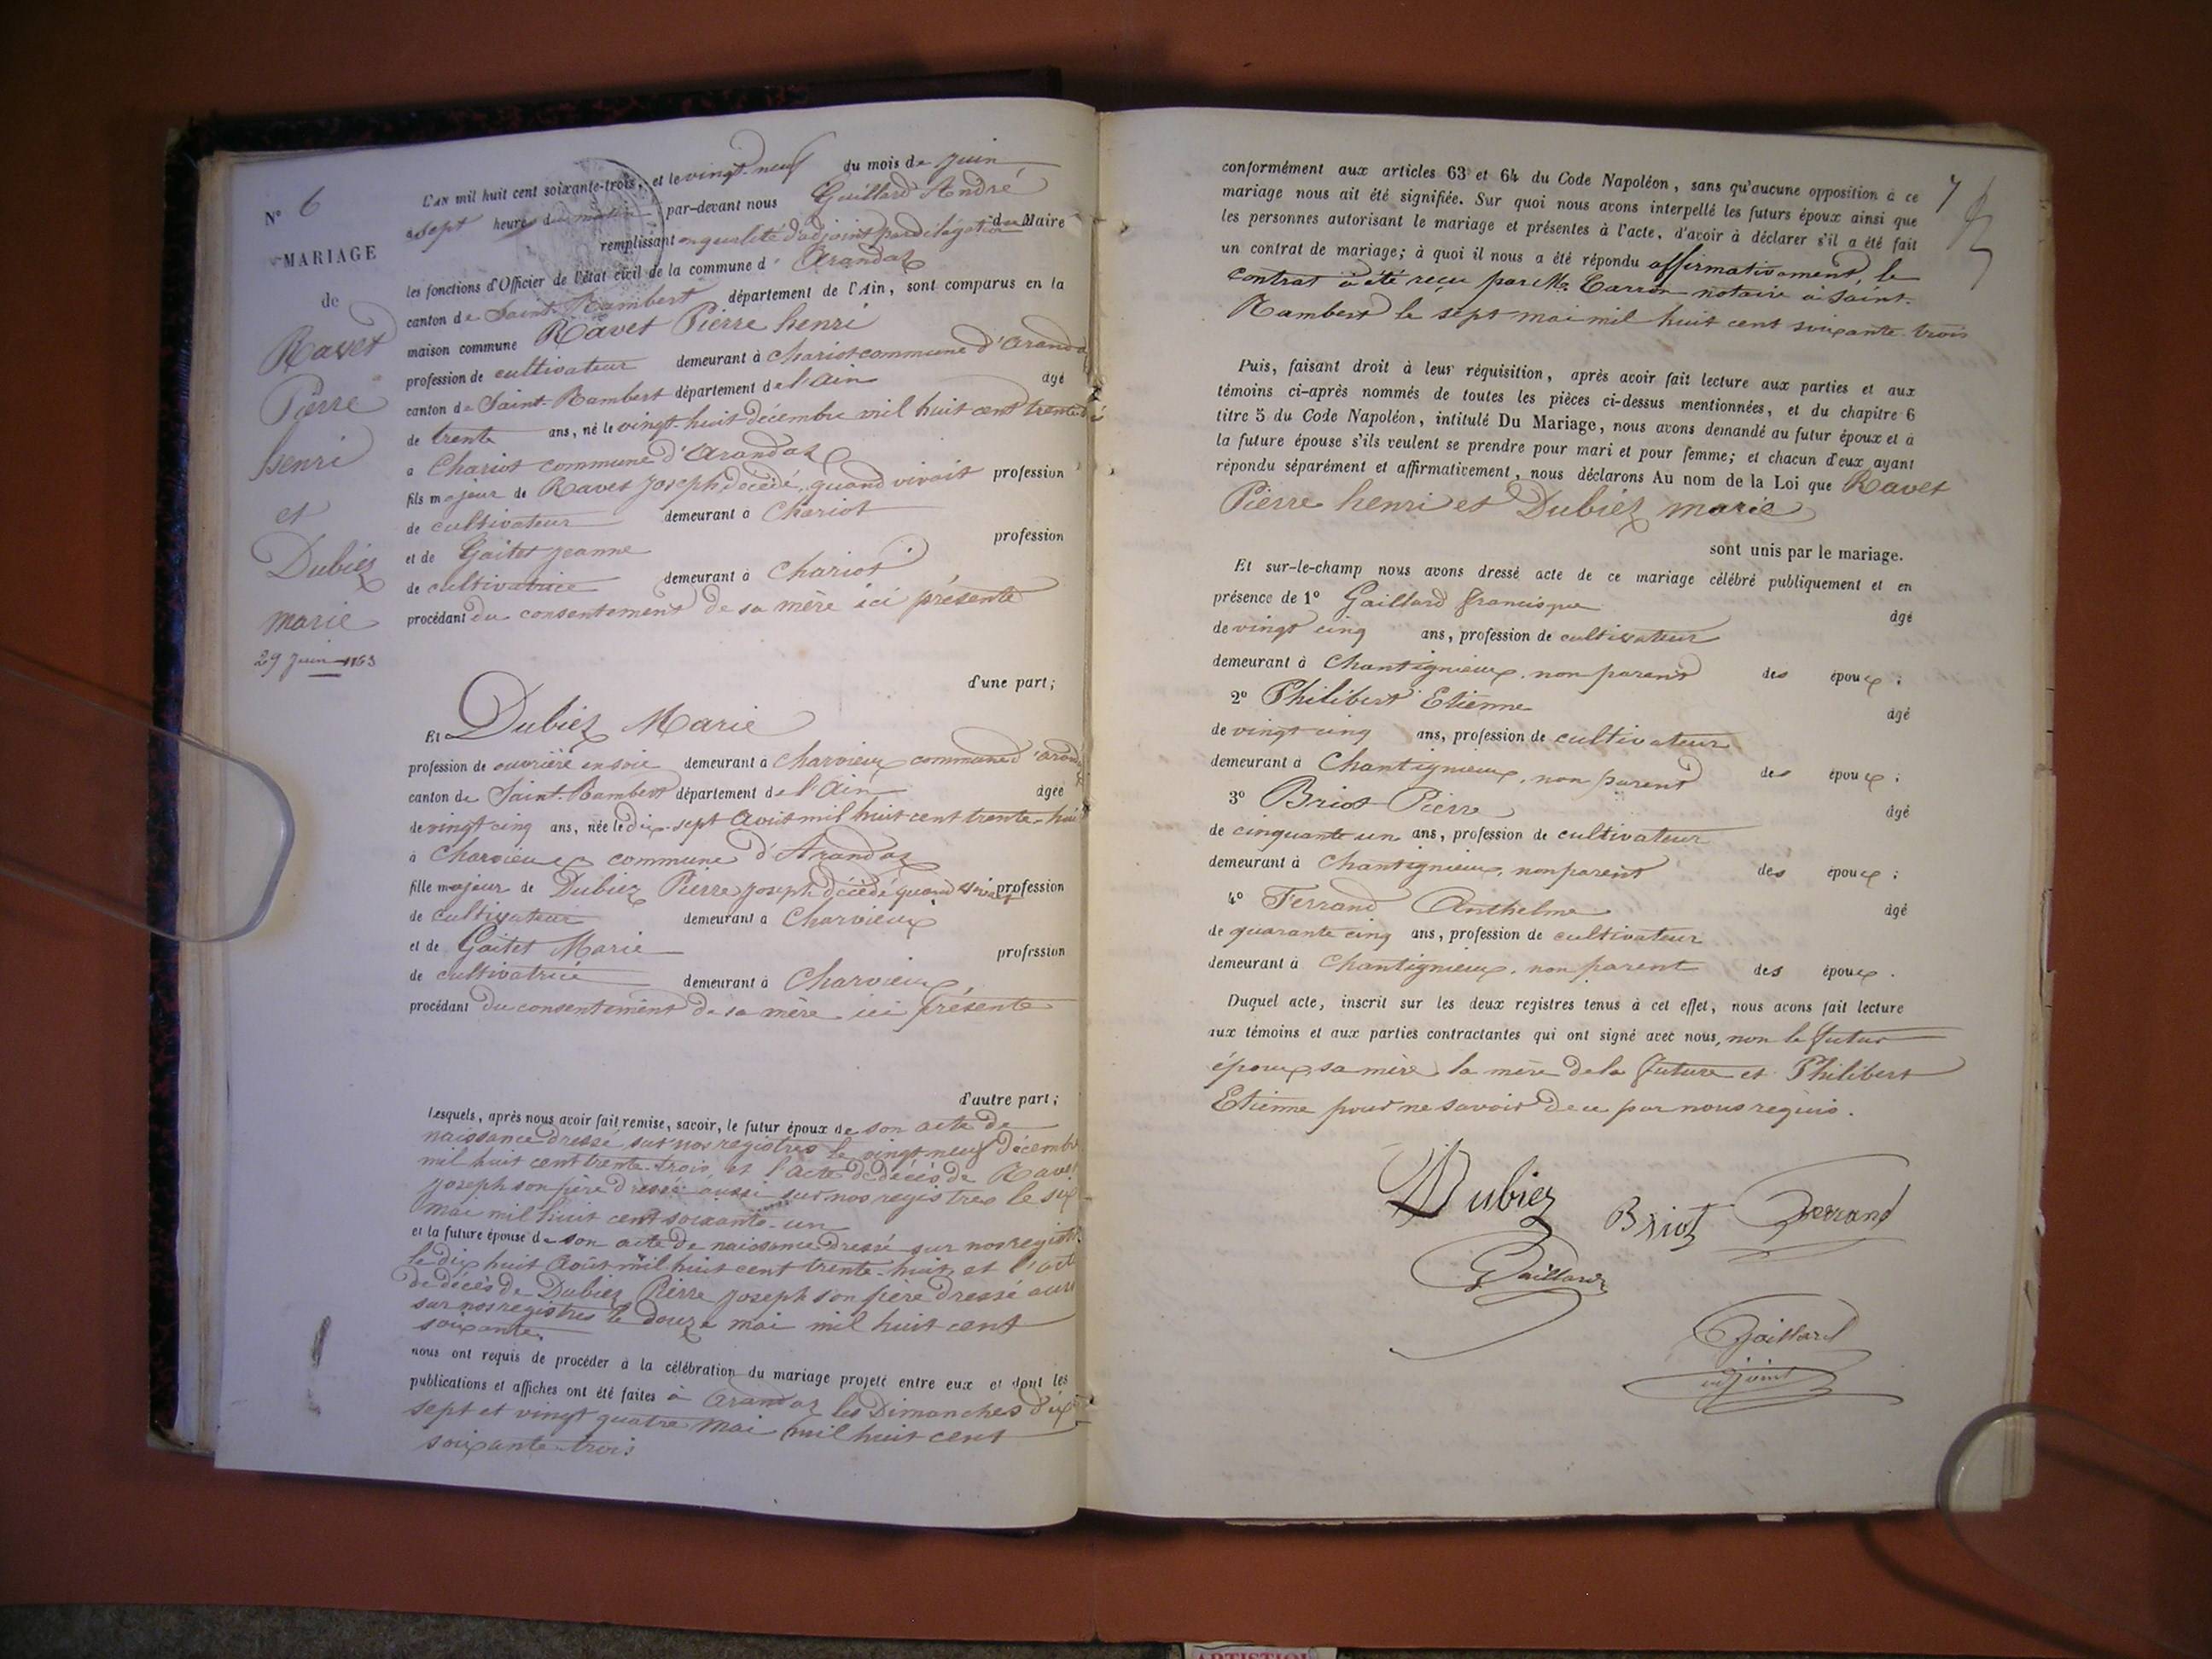 N° 6
MARIAGE
de
Ravet
Pierre
henri
et
Dubiez
marie
29 Juin 1863
L'AN mil huit cent soixante-trois, et le vingt-neuf du mois de Juin
a sept heures du matin par-devant nous Gaillard André
remplissant en qualité d'adjoint par délégation du Maire
les fonctions d'Officier de l'état civil de la commune d' Arandaz
canton de Saint-Rambert département de l'Ain, sont comparus en la
maison commune Ravet Pierre henri
profession de cultivateur demeurant à Chariot commune d'Aranda
canton de Saint-Rambert département de l'Ain âgé
de trente ans, né le vingt-huit décembre mil huit cent trente
a Chariot commune d'Arandaz
fils majeur de Ravet Joseph décédé, quand vivait profession
de cultivateur demeurant à Chariot
et de Gaitet Jeanne profession
de cultivatrice demeurant à Chariot
procédant du consentement de sa mère ici présente
d'une part;
Et Dubiez Marie
profession de ouvrière en soie demeurant à Charvieux commune d'Arand
canton de Saint-Rambert département de l'Ain âgée
de vingt cinq ans, née le dix-sept Aout mil huit cent trente-hui
à Charvieux commune d'Arandaz
fille majeur de Dubiez Pierre Joseph décédé quand vivait profession
de cultivateur demeurant à Charvieux
et de Gaitet Marie profession
de cultivatrice demeurant à Charvieux
procédant du consentement de sa mère ici présente
d'autre part;
Lesquels, après nous avoir fait remise, savoir, le futur époux de son acte de
naissance dressé sur nos registres le vingt neuf décembre
mil huit cent trente-trois, et l'acte de décès de Ravet
Joseph son père dressé aussi sur nos registres le six
mai mil huit cent soixante-un
et la future épouse de son acte de naissance dressé sur nos regist
le dix huit Août mil huit cent trente-huit, et l'act
de décès de Dubiez Pierre Joseph son père dressé auss
sur nos registres le douze mai mil huit cent
soixante.
nous ont requis de procéder à la célébration du mariage projeté entre eux et dont les
publications et affiches ont été faites à Arandaz les Dimanches dix
sept et vingt quatre mai mil huit cent
soixante-trois
7
conformément aux articles 63 et 64 du Code Napoléon, sans qu'aucune opposition à ce
mariage nous ait été signifiée. Sur quoi nous avons interpellé les futurs époux ainsi que
les personnes autorisant le mariage et présentes à l'acte, d'avoir à déclarer s'il a été fait
un contrat de mariage; à quoi il nous a été répondu affirmativement, le
contrat a été reçu par Me Carron notaire à Saint-
Rambert le sept mai mil huit cent soixante trois
Puis, faisant droit à leur réquisition, après avoir fait lecture aux parties et aux
témoins ci-après nommés de toutes les pièces ci-dessus mentionnées, et du chapitre 6
titre 5 du Code Napoléon, intitulé Du Mariage, nous avons demandé au futur époux et à
la future épouse s'ils veulent se prendre pour mari et pour femme; et chacun d'eux ayant
répondu séparément et affirmativement, nous déclarons Au nom de la Loi que Ravet
Pierre henri et Dubiez marie
sont unis par le mariage.
Et sur-le-champ nous avons dressé acte de ce mariage célébré publiquement et en
présence de 1° Gaillard francisque âgé
de vingt cinq ans, profession de cultivateur
demeurant à Chantignieux, non parent des époux;
2° Philibert Etienne âgé
de vingt cinq ans, profession de cultivateur
demeurant à Chantignieux, non parent des époux;
3° Briot Pierre âgé
de cinquante un ans, profession de cultivateur
demeurant à Chantignieux, non parent des époux;
4° Ferrand Anthelme âgé
de quarante cinq ans, profession de cultivateur
demeurant à Chantignieux, non parent des époux.
Duquel acte, inscrit sur les deux registres tenus à cet effet, nous avons fait lecture
aux témoins et aux parties contractantes qui ont signé avec nous, non le futur
époux, sa mère, la mère de la future et Philibert
Etienne pour ne savoir de ce par nous requis.
Dubiez
Briot
Ferrand
Gaillard
Gaillard
adjoint